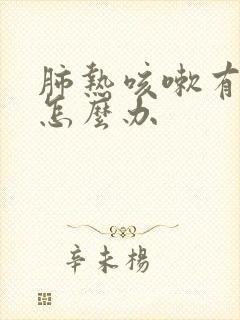 肺熱咳嗽有
怎麼办
辛未楊